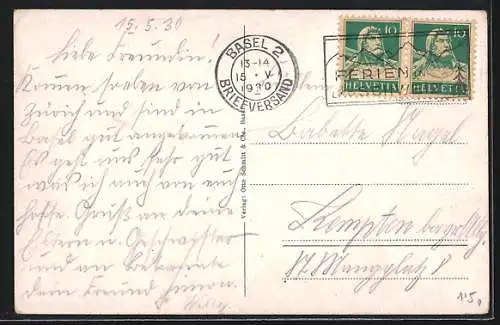 15.5.30
Liebe Freundin!
Komme soeben von
Zürich und sind in
Basel gut angekommen
Es geht uns sehr gut
was ich auch von euch
hoffe. Gruß an deine
Eltern u. Geschwister
und an Bekannte
dein Freund
Willy.
BASEL 2
13-14
15. V.
1930
BRIEFVERSAND
10 10
FERIEN
HELVETIA HELVETIA
Verlag: Otto Schmitt & Cie.
Babette Nagel
Kempten
17 8
115.